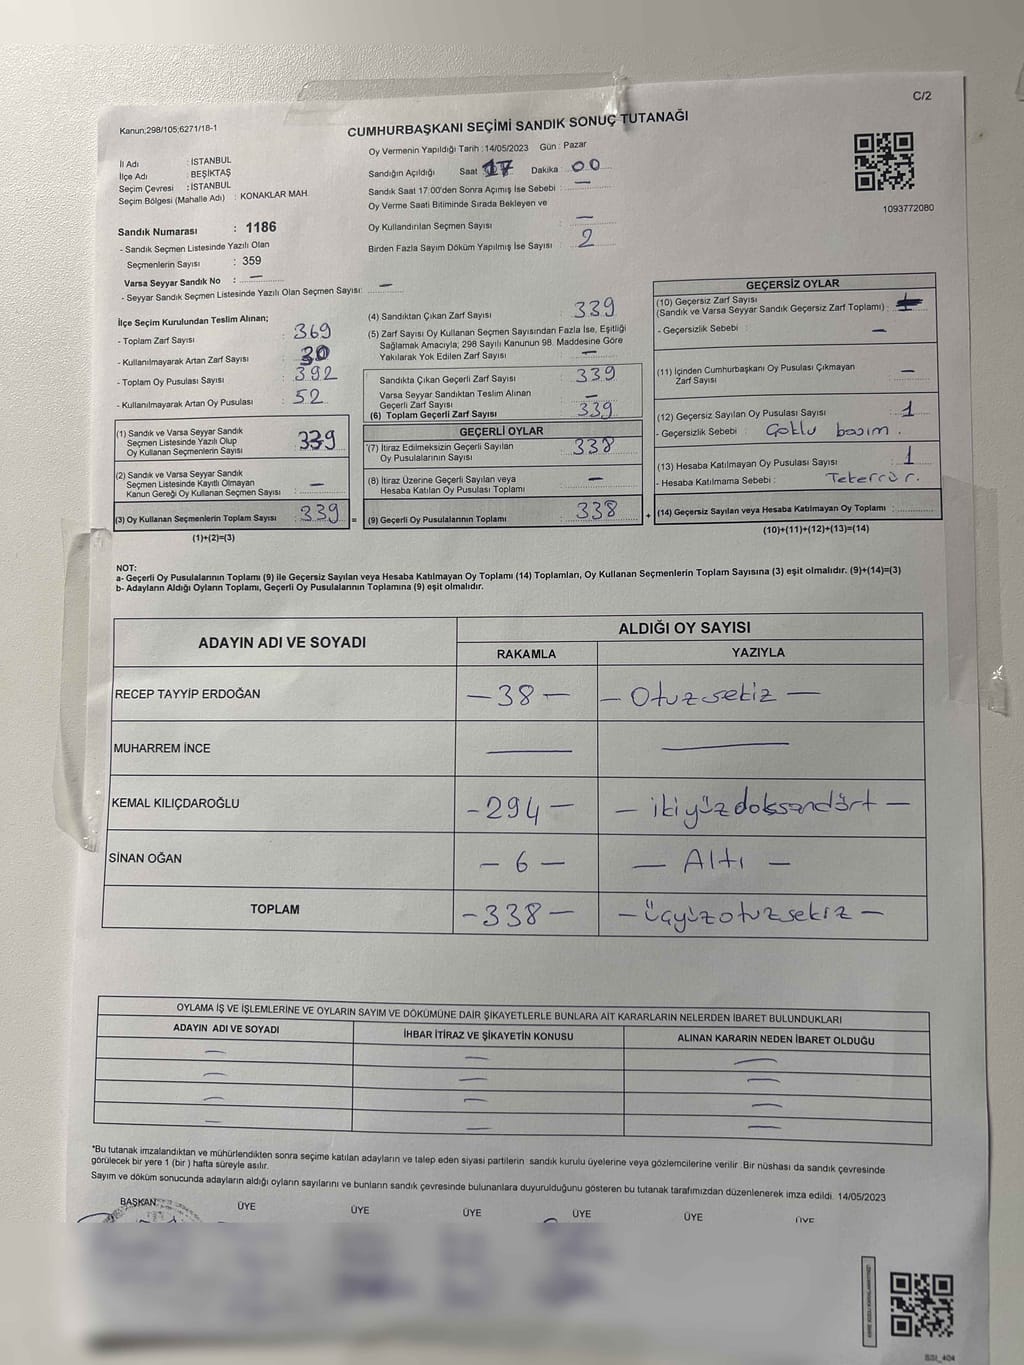 C/2
Kanun;298/105;6271/18-1
CUMHURBAŞKANI SEÇİMİ SANDIK SONUÇ TUTANAĞI
İl Adı : İSTANBUL
İlçe Adı : BEŞİKTAŞ
Seçim Çevresi : İSTANBUL
Seçim Bölgesi (Mahalle Adı) : KONAKLAR MAH.
Oy Vermenin Yapıldığı Tarih : 14/05/2023 Gün : Pazar
Sandığın Açıldığı Saat 17 Dakika : 00
Sandık Saat 17:00'den Sonra Açımış İse Sebebi : —
Oy Verme Saati Bitiminde Sırada Bekleyen ve
Oy Kullandırılan Seçmen Sayısı : —
Birden Fazla Sayım Döküm Yapılmış İse Sayısı : 2
1093772080
Sandık Numarası : 1186
- Sandık Seçmen Listesinde Yazılı Olan
Seçmenlerin Sayısı : 359
Varsa Seyyar Sandık No : —
- Seyyar Sandık Seçmen Listesinde Yazılı Olan Seçmen Sayısı: —
İlçe Seçim Kurulundan Teslim Alınan;
- Toplam Zarf Sayısı : 369
- Kullanılmayarak Artan Zarf Sayısı : 30
- Toplam Oy Pusulası Sayısı : 392
- Kullanılmayarak Artan Oy Pusulası : 52
(1) Sandık ve Varsa Seyyar Sandık
Seçmen Listesinde Yazılı Olup
Oy Kullanan Seçmenlerin Sayısı : 339
(2) Sandık ve Varsa Seyyar Sandık
Seçmen Listesinde Kayıtlı Olmayan
Kanun Gereği Oy Kullanan Seçmen Sayısı : —
(3) Oy Kullanan Seçmenlerin Toplam Sayısı : 339 =
(1)+(2)=(3)
(4) Sandıktan Çıkan Zarf Sayısı : 339
(5) Zarf Sayısı Oy Kullanan Seçmen Sayısından Fazla İse, Eşitliği
Sağlamak Amacıyla; 298 Sayılı Kanunun 98. Maddesine Göre
Yakılarak Yok Edilen Zarf Sayısı : —
Sandıkta Çıkan Geçerli Zarf Sayısı : 339
Varsa Seyyar Sandıktan Teslim Alınan
Geçerli Zarf Sayısı : —
(6) Toplam Geçerli Zarf Sayısı : 339
GEÇERLİ OYLAR
(7) İtiraz Edilmeksizin Geçerli Sayılan
Oy Pusulalarının Sayısı : 338
(8) İtiraz Üzerine Geçerli Sayılan veya
Hesaba Katılan Oy Pusulası Toplamı : —
(9) Geçerli Oy Pusulalarının Toplamı : 338 +
GEÇERSİZ OYLAR
(10) Geçersiz Zarf Sayısı
(Sandık ve Varsa Seyyar Sandık Geçersiz Zarf Toplamı) :
- Geçersizlik Sebebi : —
(11) İçinden Cumhurbaşkanı Oy Pusulası Çıkmayan
Zarf Sayısı : —
(12) Geçersiz Sayılan Oy Pusulası Sayısı : 1
- Geçersizlik Sebebi : Çoklu basım.
(13) Hesaba Katılmayan Oy Pusulası Sayısı : 1
- Hesaba Katılmama Sebebi :
(14) Geçersiz Sayılan veya Hesaba Katılmayan Oy Toplamı :
(10)+(11)+(12)+(13)=(14)
NOT:
a- Geçerli Oy Pusulalarının Toplamı (9) ile Geçersiz Sayılan veya Hesaba Katılmayan Oy Toplamı (14) Toplamları, Oy Kullanan Seçmenlerin Toplam Sayısına (3) eşit olmalıdır. (9)+(14)=(3)
b- Adayların Aldığı Oyların Toplamı, Geçerli Oy Pusulalarının Toplamına (9) eşit olmalıdır.
ADAYIN ADI VE SOYADI ALDIĞI OY SAYISI
RAKAMLA YAZIYLA
RECEP TAYYİP ERDOĞAN —38— — Otuzsekiz —
MUHARREM İNCE — —
KEMAL KILIÇDAROĞLU -294— — ikiyüzdoksandört —
SİNAN OĞAN — 6 — — Altı —
TOPLAM -338— —üçyüzotuzsekiz —
OYLAMA İŞ VE İŞLEMLERİNE VE OYLARIN SAYIM VE DÖKÜMÜNE DAİR ŞİKAYETLERLE BUNLARA AİT KARARLARIN NELERDEN İBARET BULUNDUKLARI
ADAYIN ADI VE SOYADI İHBAR İTİRAZ VE ŞİKAYETİN KONUSU ALINAN KARARIN NEDEN İBARET OLDUĞU
— — —
— — —
— — —
— — —
*Bu tutanak imzalandıktan ve mühürlendikten sonra seçime katılan adayların ve talep eden siyasi partilerin sandık kurulu üyelerine veya gözlemcilerine verilir. Bir nüshası da sandık çevresinde
görülecek bir yere 1 (bir ) hafta süreyle asılır.
Sayım ve döküm sonucunda adayların aldığı oyların sayılarını ve bunların sandık çevresinde bulunanlara duyurulduğunu gösteren bu tutanak tarafımızdan düzenlenerek imza edildi. 14/05/2023
BAŞKAN ÜYE ÜYE ÜYE ÜYE ÜYE ÜYE